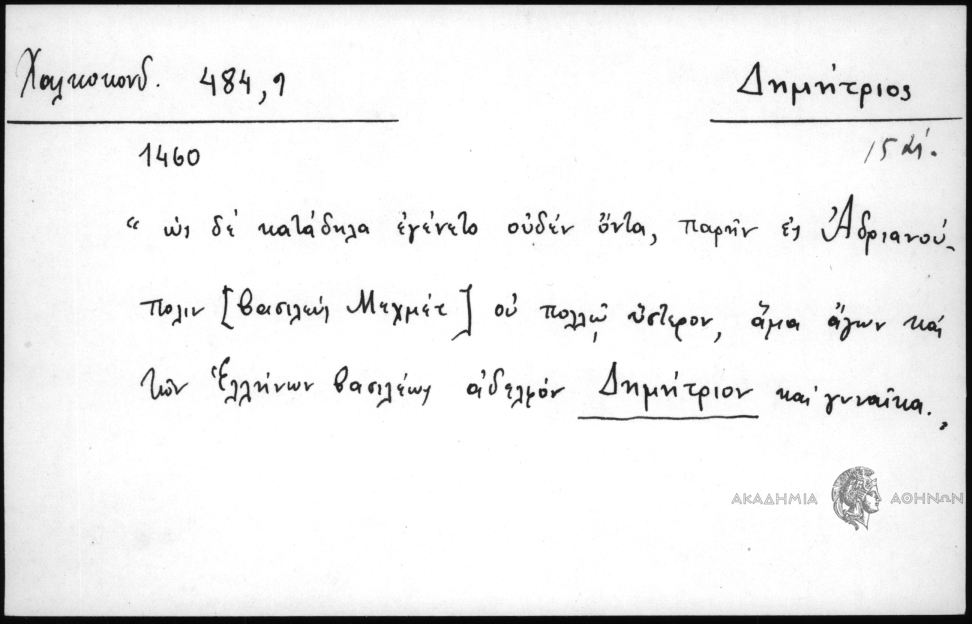 Χαλκοκονδ. 484,9
Δημήτριος
1460
15 αἰ.
“ ὡς δὲ κατάδηλα ἐγένετο οὐδὲν ὄντα, παρῆν ἐς Ἀδριανού-
πολιν [βασιλεὺς Μεχμέτ] οὐ πολλῷ ὕστερον, ἅμα ἄγων καὶ
τῶν Ἑλλήνων βασιλέως ἀδελφὸν Δημήτριον καὶ γυναῖκα.„
ΑΚΑΔΗΜΙΑ ΑΘΗΝΩΝ